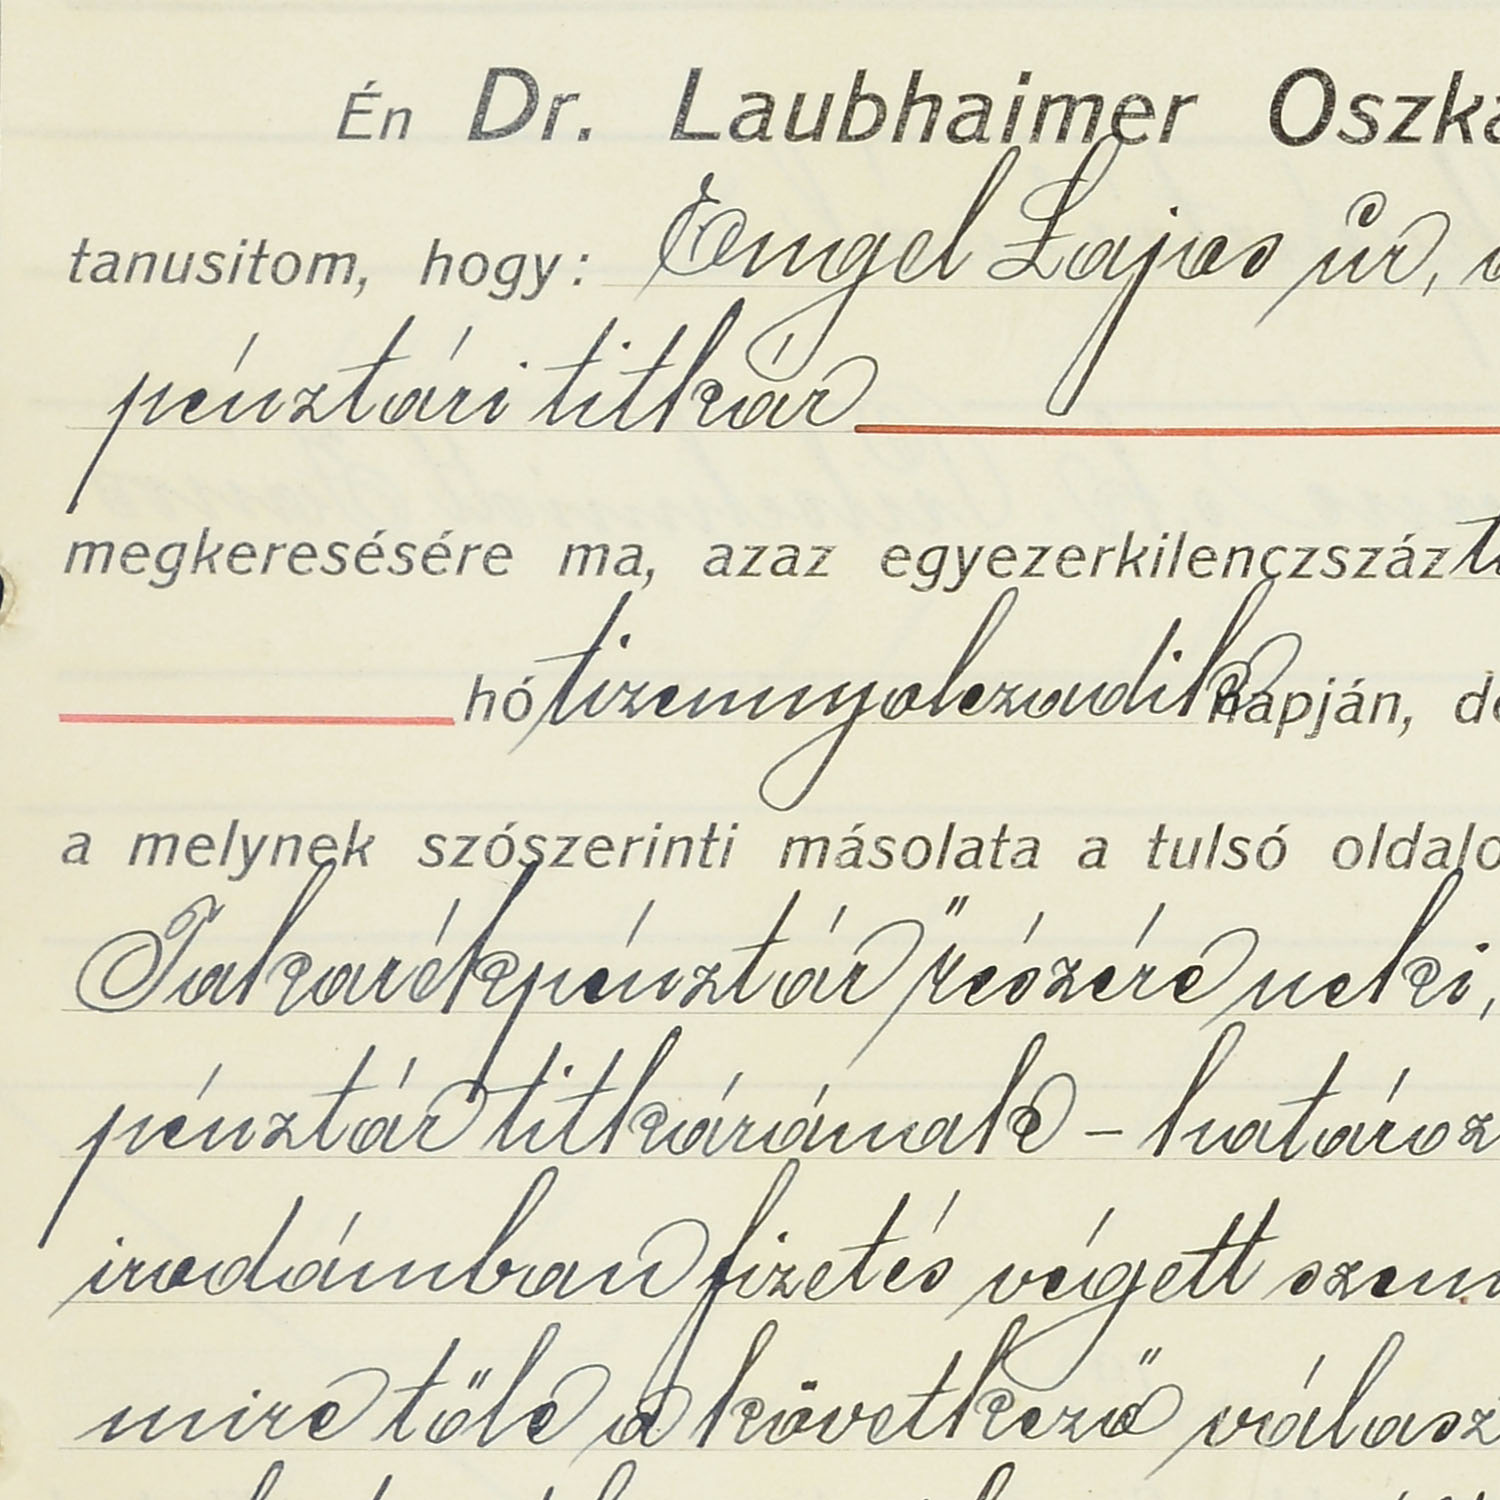 Én Dr. Laubhaimer Oszká
tanusitom, hogy: Engel Lajos úr, a
pénztári titkár
megkeresésére ma, azaz egyezerkilenczszázti
hó tizennyolczadik napján, de
a melynek szószerinti másolata a tulsó oldalo
Takarékpénztár" részére neki,
pénztár titkárának – határoz
irodámban fizetés végett szem
mire tőle a következő válasz